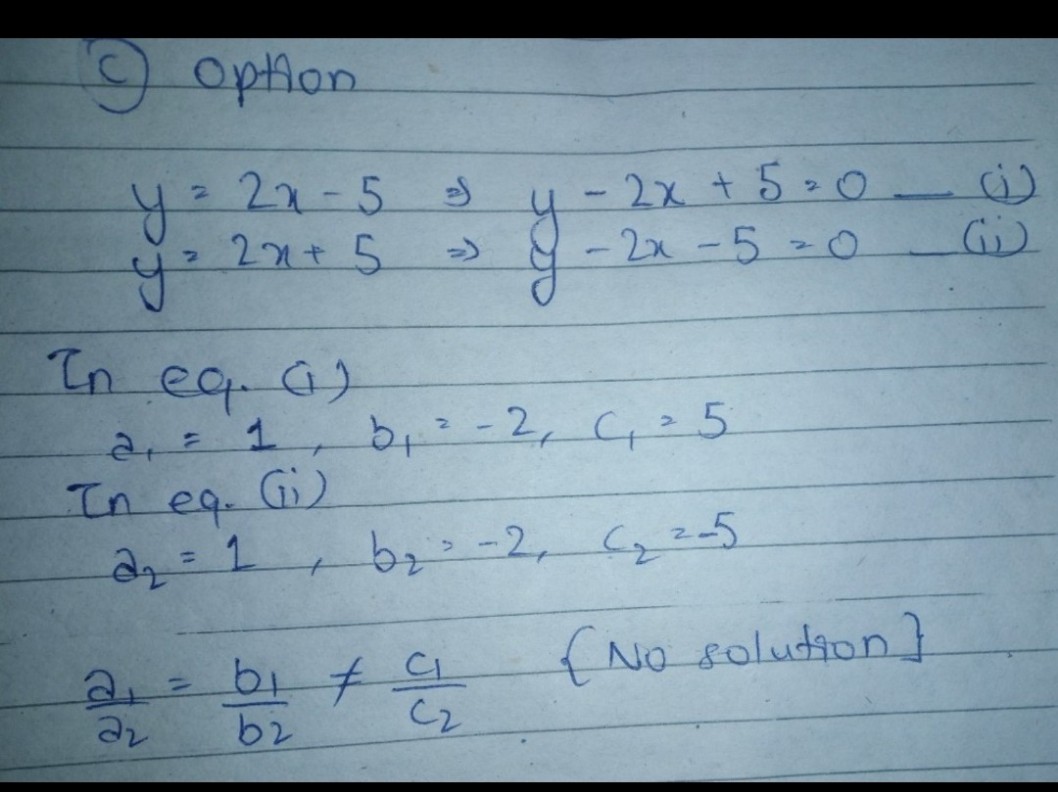 (C) Option
y = 2x - 5 ⇒ y - 2x + 5 = 0 — (i)
y = 2x + 5 ⇒ y - 2x - 5 = 0 — (ii)
In eq. (i)
a₁ = 1, b₁ = -2, c₁ = 5
In eq. (ii)
a₂ = 1, b₂ = -2, c₂ = -5
a₁/a₂ = b₁/b₂ ≠ c₁/c₂ {No solution}